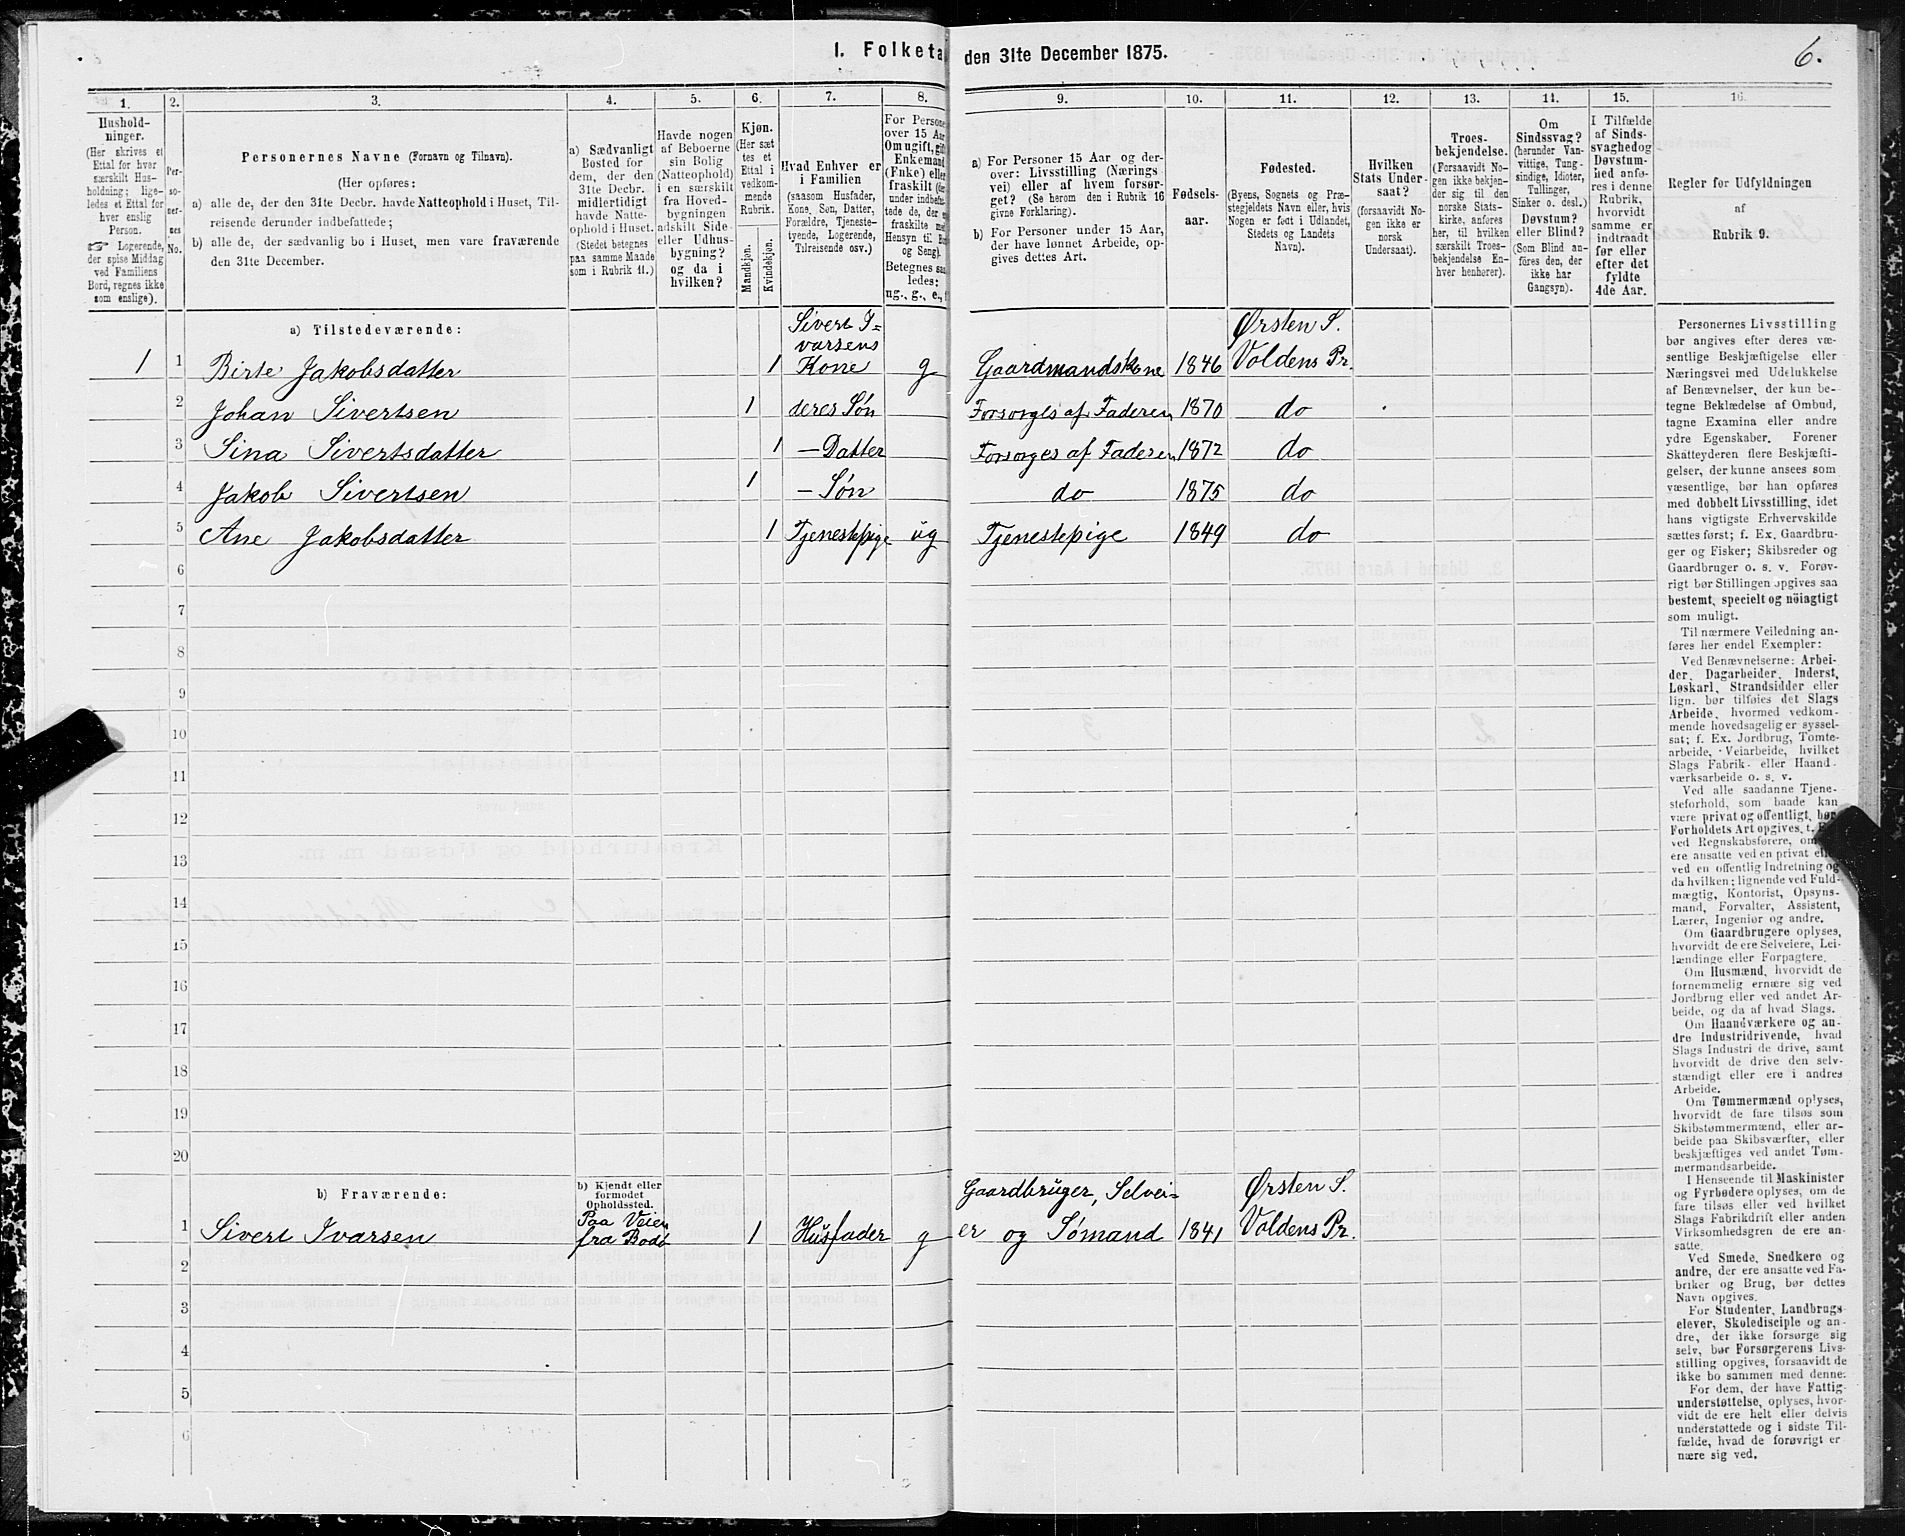 I. Folketa
den 31te December 1875.
6.
1.
2.
3.
4.
5.
6.
7.
8.
9.
10.
11.
12.
13.
14.
15.
16.
Hushold-
ninger.
(Her skrives et
Ettal for hver
særskilt Hus-
holdning; lige-
ledes et Ettal for
hver enslig
Person.
☞ Logerende,
der spise Middag
ved Familiens
Bord, regnes ikke
som enslige).
Per-
so-
ner-
nes
No.
Personernes Navne (Fornavn og Tilnavn).
(Her opføres:
a) alle de, der den 31te Decbr. havde Natteophold i Huset, Til-
reisende derunder indbefattede;
b) alle de, der sædvanlig bo i Huset, men vare fraværende
den 31te December.
a) Sædvanligt
Bosted for
dem, der den
31te Decbr.
midlertidigt
havde Natte-
ophold i Huset.
(Stedet betegnes
paa samme Maade
som i Rubrik 11.)
Havde nogen
af Beboerne
sin Bolig
(Natteophold)
i en særskilt
fra Hoved-
bygningen
adskilt Side-
eller Udhus-
bygning?
og da i
hvilken?
Kjøn.
(Her sæt-
tes et
Ettal i
vedkom-
mende
Rubrik.
Mandkjøn.
Kvindekjøn.
Hvad Enhver er
i Familien
(saasom Husfader,
Kone, Søn, Datter,
Forældre, Tjeneste-
tyende, Logerende,
Tilreisende osv.)
For Persone
over 15 Aar
Om ugift, gift
Enkemand
(Enke) eller
fraskilt (der
under indbefat-
tede de, der e
fraskilte med
Hensyn til. B
og Seng).
Betegnes saa
ledes:
ug., g., e.,
a) For Personer 15 Aar og der-
over: Livsstilling (Nærings-
vei) eller af hvem forsør-
get? (Se herom den i Rubrik 16
givne Forklaring).
b) For Personer under 15 Aar,
der have lønnet Arbeide, op-
gives dettes Art.
Fødsels-
aar.
Fødested.
(Byens, Sognets og Præ-
stegjeldets Navn eller, hvis
Nogen er født i Udlandet,
Stedets og Landets
Navn).
Hvilken
Stats Under-
saat?
(forsaavidt No-
gen ikke er
norsk
Undersaat).
Troes-
bekjendelse.
(Forsaavidt No-
gen ikke bekjen-
der sig til den
norske Stats-
kirke, anføres
her, til hvilken
særskilt Troes-
bekjendelse En-
hver henhører).
Om
Sindssvag?
(herunder Van-
vittige, Tung-
sindige, Idioter,
Tullinger,
Sinker o. desl.)
Døvstum?
eller Blind?
(Som Blind an-
føres den, der
ikke har
Gangsyn).
I Tilfælde
af Sinds-
svaghed og
Døvstum-
hed anfø-
res i denne
Rubrik,
hvorvidt
samme er
indtraadt
før eller
efter det
fyldte
4de Aar.
Regler før Udfyldningen
af
Rubrik 9.
a) Tilstedeværende:
1 1 Birte Jakobsdatter 1 Sivert I=
varsens
Kone g Gaardmandskone 1846 Ørsten S.
Voldens Pr.
2 Johan Sivertsen 1 deres Søn Forsørges af Faderen 1870 do
3 Sina Sivertsdatter 1 — Datter Forsørges af Faderen 1872 do
4 Jakob Sivertsen 1 — Søn do 1875 do
5 Ane Jakobsdatter 1 Tjenestepige ug Tjenestepige 1849 do
6
7
8
9
10
11
12
13
14
15
16
17
18
19
20
b) Fraværende:
b) Kjendt eller
formodet
Opholdssted.
1 Sivert Ivarsen Paa Veien
fra Bodø 1 Husfader g Gaardbruger, Selvei=
er og Sømand 1841 Ørsten S.
Voldens Pr.
2
3
4
5
6
Personernes Livsstilling
bør angives efter deres væ-
sentlige Beskjæftigelse eller
Næringsvei med Udelukkelse
af Benævnelser, der kun be-
tegne Beklædelse af Ombud,
tagne Examina eller andre
ydre Egenskaber. Forener
Skatteyderen flere Beskjæfti-
gelser, der kunne ansees som
væsentlige, bør han opføres
med dobbelt Livsstilling, idet
hans vigtigste Erhvervskilde
sættes først; f. Ex. Gaardbru-
ger og Fisker; Skibsreder og
Gaardbruger o. s. v. Forøv-
rigt bør Stillingen opgives saa
bestemt, specielt og nöiagtigt
som muligt.
Til nærmere Veiledning an-
føres her endel Exempler:
Ved Benævnelserne: Arbei-
der, Dagarbeider, Inderst,
Løskarl, Strandsidder eller
lign. bør tilføies det Slags
Arbeide, hvormed vedkom-
mende hovedsagelig er syssel-
sat; f. Ex. Jordbrug, Tomte-
arbeide, Veiarbeide, hvilket
Slags Fabrik- eller Haand-
værksarbeide o. s. v.
Ved alle saadanne Tjene-
steforhold, som baade kan
være privat og offentligt, bør
Forholdets Art opgives, t.
ved Regnskabsførere, om
ere ansatte ved en privat el
ved en offentlig Indretning og
da hvilken; lignende ved Fuld-
mægtig, Kontorist, Opsyns-
mand, Forvalter, Assistent,
Lærer, Ingeniør og andre.
Om Gaardbrugere oplyses,
hvorvidt de ere Selveiere, Lei-
lændinge eller Forpagtere.
Om Husmænd, hvorvidt de
fornemmelig ernære sig ved
Jordbrug eller ved andet Ar-
beide, og da af hvad Slags.
Om Haandværkere og an-
dre Industridrivende, hvad
Slags Industri de drive, samt
hvorvidt de drive den selv-
stændigt eller ere i andres
Arbeide.
Om Tømmermænd oplyses,
hvorvidt de fare tilsøs som
Skibstømmermænd, eller ar-
beide paa Skibsværfter, eller
beskjæftiges ved andet Tøm-
mermandsarbeide.
I Henseende til Maskinister
og Fyrbødere oplyses, om de
fare tilsøs eller ved hvilket
Slags Fabrikdrift eller anden
Virksomhedsgren de ere an-
satte.
Ved Smede, Snedkere og
andre, der ere ansatte ved Fa-
briker og Brug, bør dettes
Navn opgives.
For Studenter, Landbrugs-
elever, Skoledisciple og an-
dre, der ikke forsørge sig
selv, bør Forsørgerens Livs-
stilling opgives, forsaavidt de
ikke bo sammen med denne.
For dem, der have Fattig-
understøttelse, oplyses, hvor-
vidt de ere helt eller delvis
understøttede og i sidste Til-
fælde, hvad de forøvrigt er-
nære sig ved.